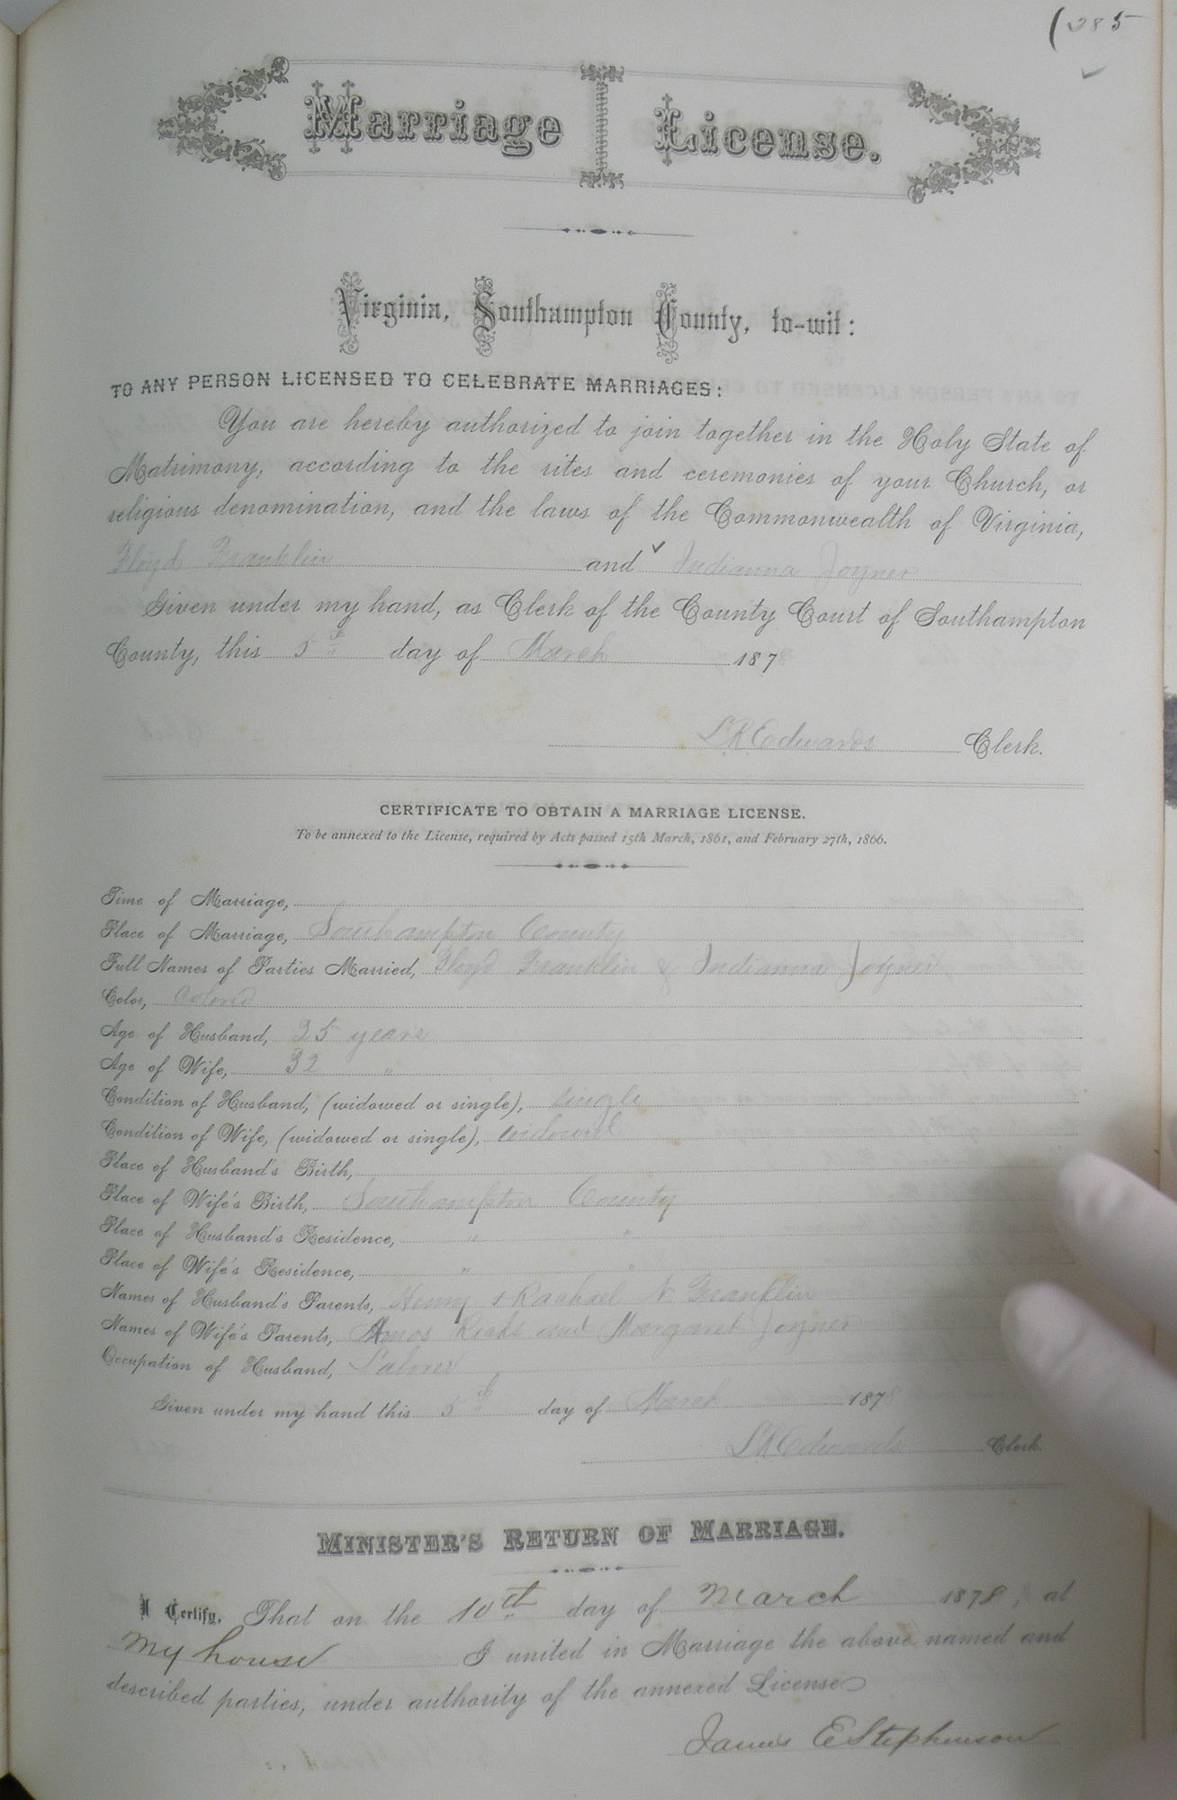 (285
Marriage License.
Virginia, Southampton County, to-wit:
TO ANY PERSON LICENSED TO CELEBRATE MARRIAGES:
You are hereby authorized to join together in the Holy State of
Matrimony, according to the rites and ceremonies of your Church, or
religious denomination, and the laws of the Commonwealth of Virginia,
Floyd Franklin and Indianna Joyner
Given under my hand, as Clerk of the County Court of Southampton
County, this 5th day of March 187
L R Edwards Clerk.
CERTIFICATE TO OBTAIN A MARRIAGE LICENSE.
To be annexed to the License, required by Acts passed 15th March, 1861, and February 27th, 1866.
Time of Marriage,
Place of Marriage, Southampton County
Full Names of Parties Married, Floyd Franklin & Indianna Joyner
Color, Colord
Age of Husband, 35 years
Age of Wife, 32 "
Condition of Husband, (widowed or single), single
Condition of Wife, (widowed or single), widowed
Place of Husband's Birth,
Place of Wife's Birth, Southampton County
Place of Husband's Residence, " "
Place of Wife's Residence, " "
Names of Husband's Parents, Henry & Rachael Franklin
Names of Wife's Parents, Amos Ricks and Margaret Joyner
Occupation of Husband, Laborer
Given under my hand this 5th day of March 1878
L R Edwards Clerk.
MINISTER'S RETURN OF MARRIAGE.
I Certify, That on the 10th day of March 1878, at
my house I united in Marriage the above named and
described parties, under authority of the annexed License
James E Stephenson